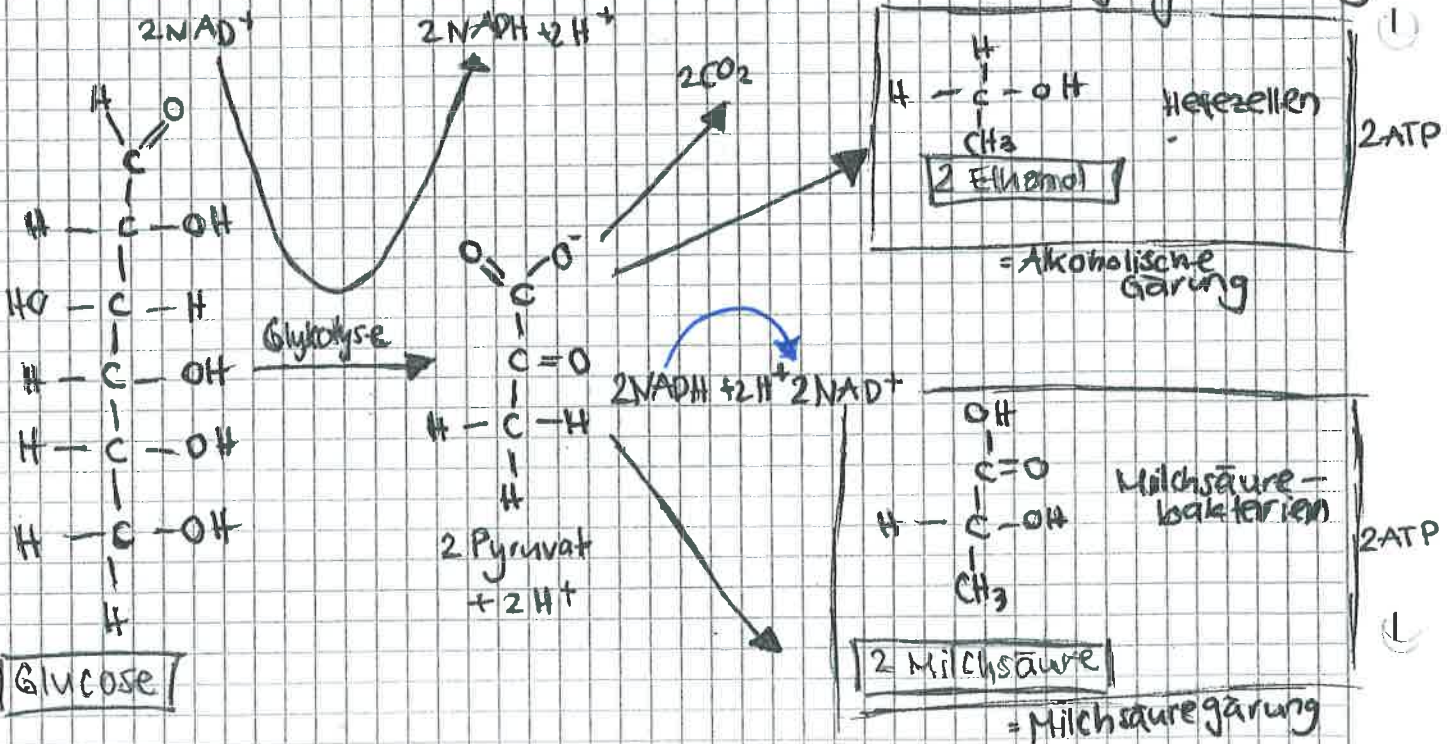 2NAD⁺
2NADH + 2H⁺
H
O
C
H — C — OH
HO — C — H
H — C — OH
H — C — OH
H — C — OH
H
Glucose
Glykolyse
O
O⁻
C
C = O
H — C — H
H
2 Pyruvat
+ 2H⁺
2CO₂
H
H — C — OH
CH₃
2 Ethanol
Hefezellen
2 ATP
= Alkoholische
Gärung
2NADH + 2H⁺ 2NAD⁺
OH
C = O
H — C — OH
CH₃
Milchsäure-
bakterien
2 ATP
2 Milchsäure
= Milchsäuregärung